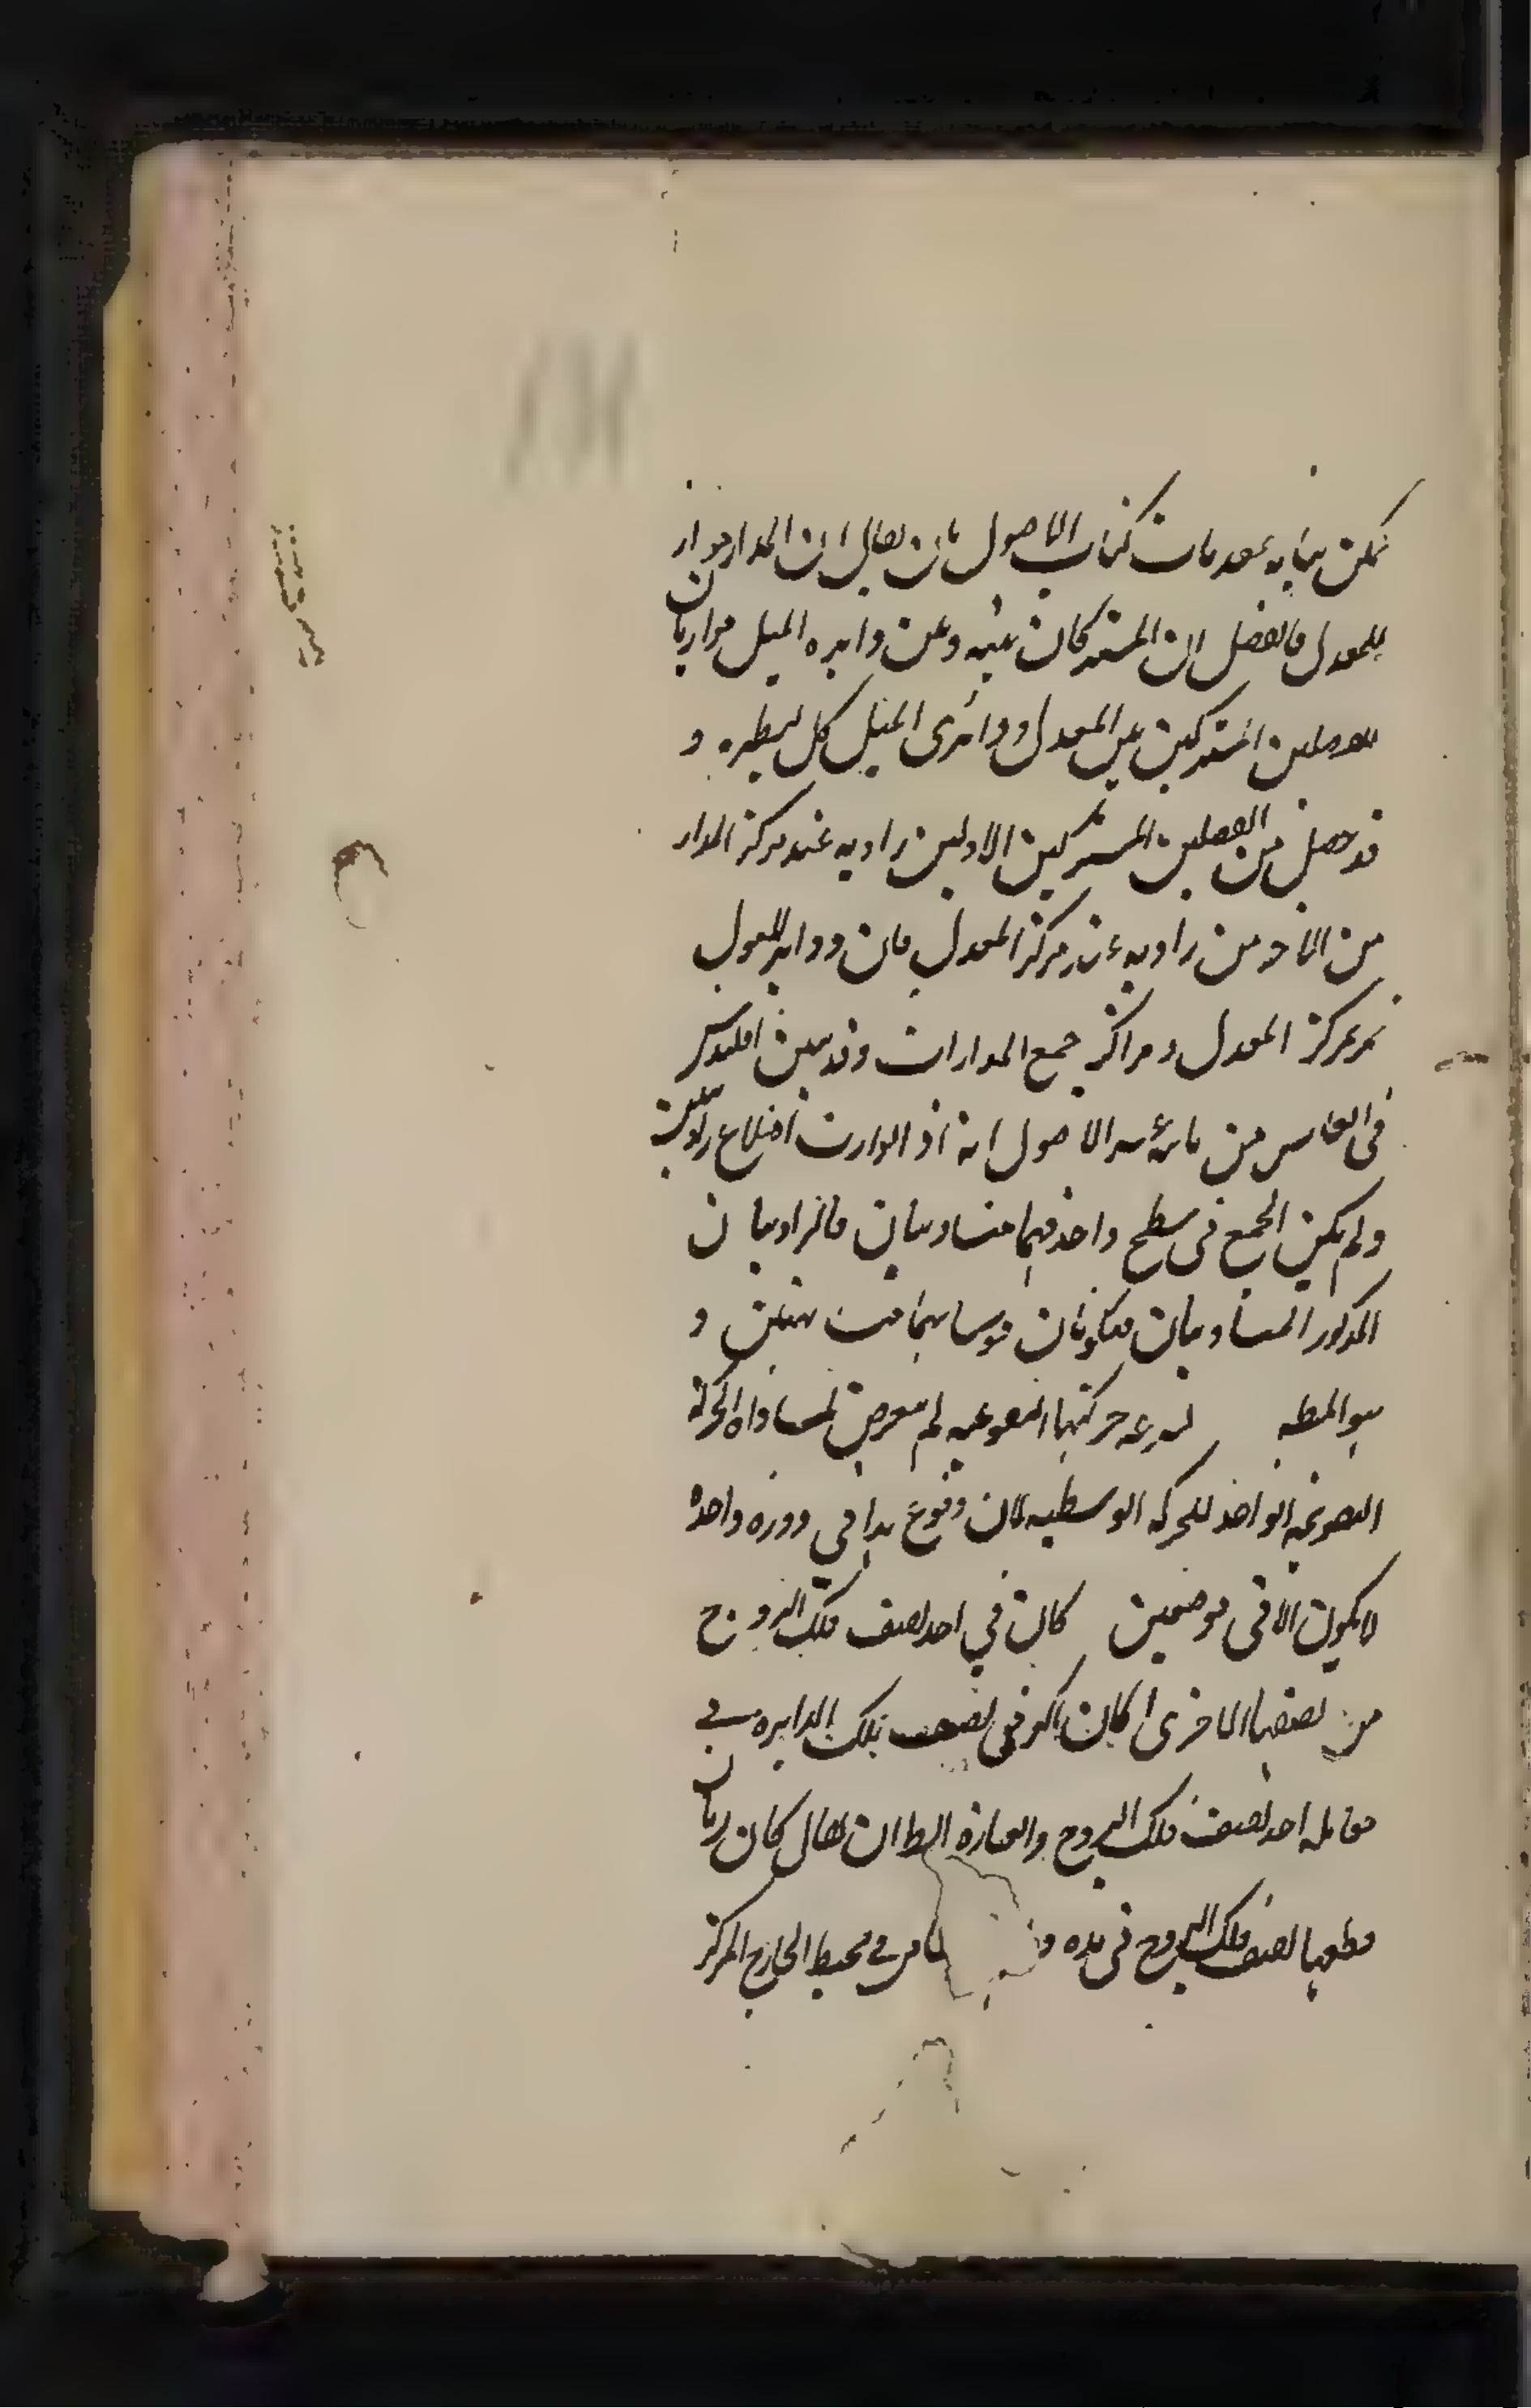 يمكن بيانه بمقدمات كتاب الاصول بان يقال ان المدار مواز
للمعدل فالفصل ان المشتركان بينه وبين دايره الميل موازيان
للفصلين المشتركين بين المعدل ودائرتى الميل كل لنظيره و
قد حصل من الفصلين المشتركين الاولين زاويه عند مركز المدار
من الاخر من زاويه عند مركز المعدل فان دواير الميول
تمر بمركز المعدل ومراكز جميع المدارات وقد بين اقليدس
فى العاشر من الاصول انه اذا توازت اضلاع زاويتين
ولم يكن الجميع فى سطح واحد فهما متساويتان فالزاويتان
المذكور المتساويتان فيكونان قوساهما متشابهتين و
هو المط لسرعه حركتها التقويميه لم يتعرض لمساواه الحركه
التقويميه الواحد للحركه الوسطيه لان وقوع هذا فى دوره واحده
لا يكون الا فى موضعين كان في احد نصف فلك البروج
من نصفها الاخرى كان اكبر فى نصف تلك الدايره في
مقابله احد نصف فلك البروج والعبارة الط ان يقال كان زمان
قطعها نصف فلك البروج فى مده و من محيط الخارج المركز